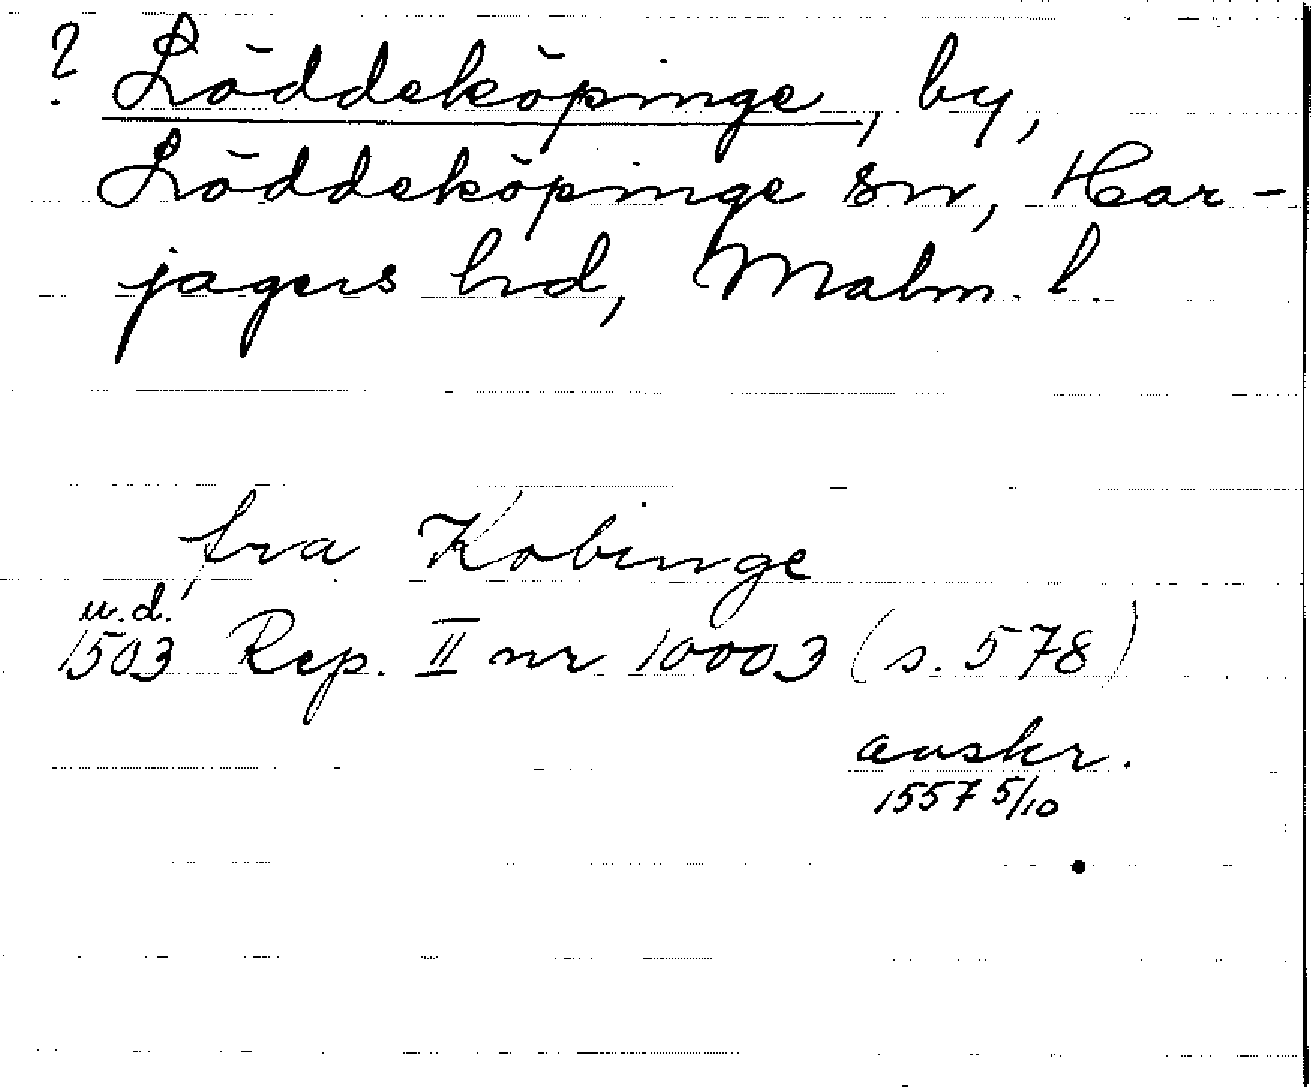 ? Löddeköpinge, by,
Löddeköpinge sn, Har-
jagers hd, Malm. l.
fra Kobinge
u.d.
1503 Rep. II nr 10003 (s. 578)
avskr.
1557 5/10